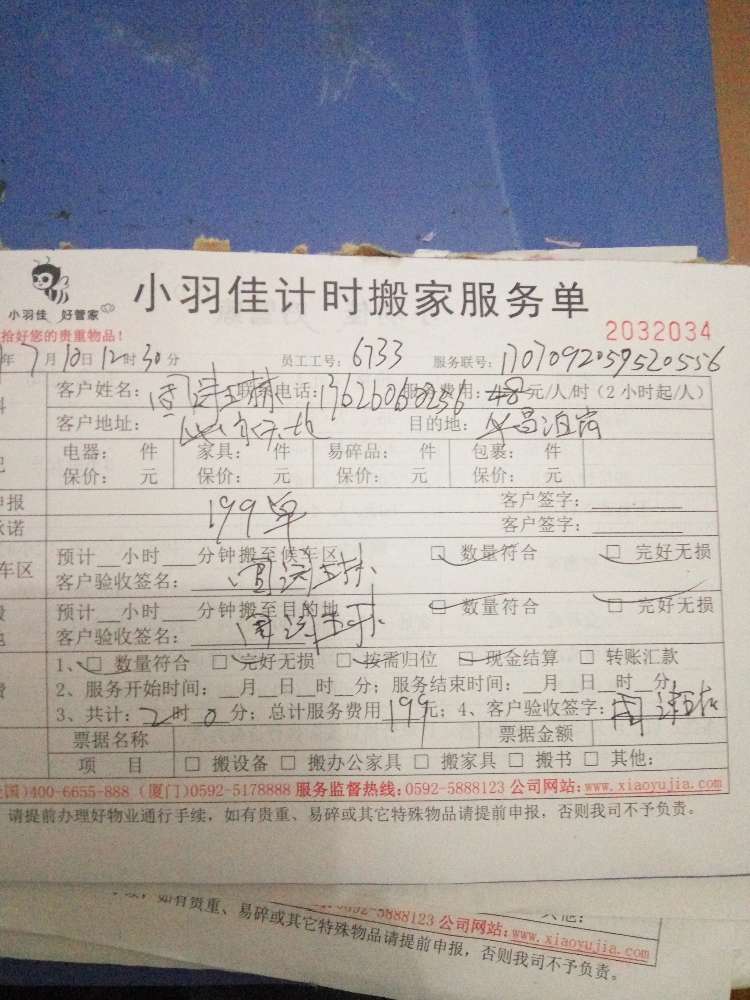 小羽佳 好管家
小羽佳计时搬家服务单
拾好您的贵重物品！
2032034
年7月10日12时30分 员工工号：6733 服务联号：1707092059520556
客户姓名： 联系电话：17626060256 服务费用：48元/人/时（2小时起/人）
客户地址： 目的地：
电器： 件 家具： 件 易碎品： 件 包裹： 件
保价： 元 保价： 元 保价： 元 保价： 元
申报 199单 客户签字：
承诺 客户签字：
预计__小时__分钟搬至候车区 □ 数量符合 □ 完好无损
车区 客户验收签名：
预计__小时__分钟搬至目的地 □ 数量符合 □ 完好无损
地 客户验收签名：
1、□ 数量符合 □ 完好无损 □ 按需归位 □ 现金结算 □ 转账汇款
2、服务开始时间：__月__日__时__分；服务结束时间：__月__日__时__分；
费 3、共计：2时0分；总计服务费用199元；4、客户验收签字：
票据名称 票据金额
项 目 □ 搬设备 □ 搬办公家具 □ 搬家具 □ 搬书 □ 其他：
国)400-6655-888（厦门)0592-5178888 服务监督热线:0592-5888123 公司网站:www.xiaoyujia.com
请提前办理好物业通行手续，如有贵重、易碎或其它特殊物品请提前申报，否则我司不予负责。
其他：
0592-5888123 公司网站:www.xiaoyujia.com
如有贵重、易碎或其它特殊物品请提前申报，否则我司不予负责。